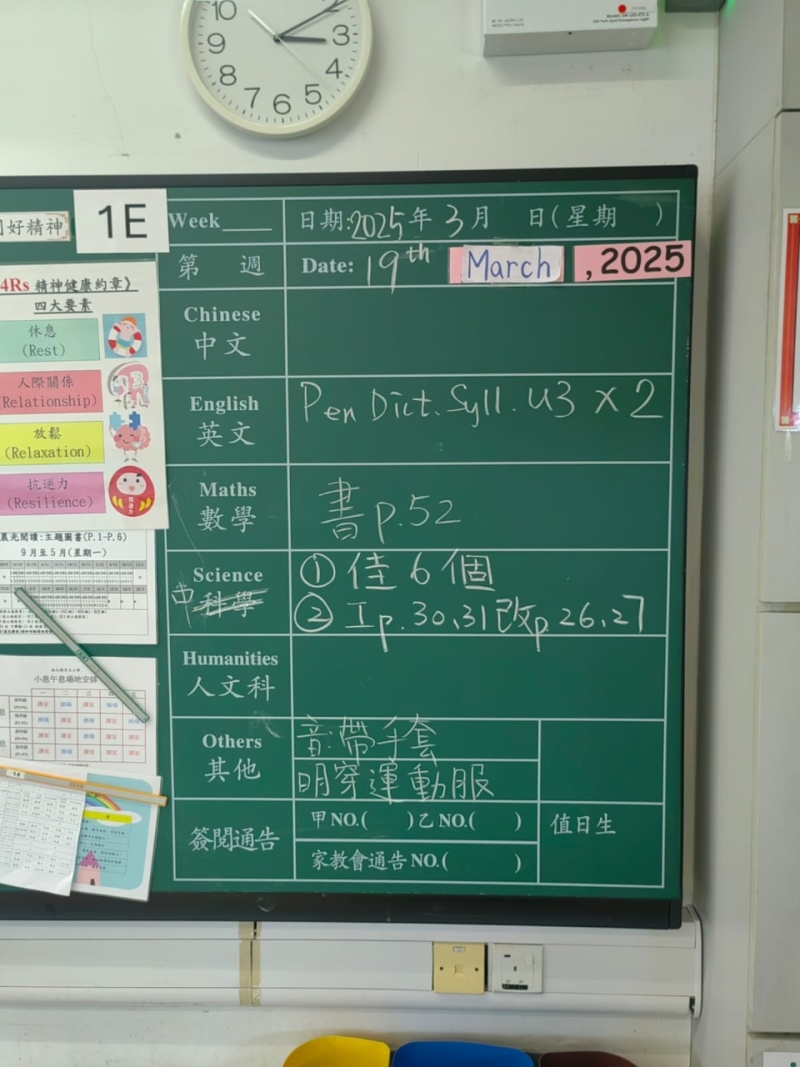 10
9
8
7
6
5
4
3
好精神
1E
Week
日期:2025年 3月 日(星期 )
第 週
Date: 19th March , 2025
4Rs 精神健康約章》
四大要素
休息
(Rest)
人際關係
(Relationship)
放鬆
(Relaxation)
抗逆力
(Resilience)
Chinese
中文
English
英文
Pen Dict. Syll. U3 x 2
Maths
數學
書 p.52
Science
中 科學
① 佳 6 個
② 工 p.30、31 改 p 26、27
Humanities
人文科
Others
其他
音:帶手套
明穿運動服
簽閱通告
甲NO.( )乙NO.( )
家教會通告NO.( )
值日生
晨光閱讀:主題圖書(P.1-P.6)
9月至5月(星期一)
小息午息場地安排